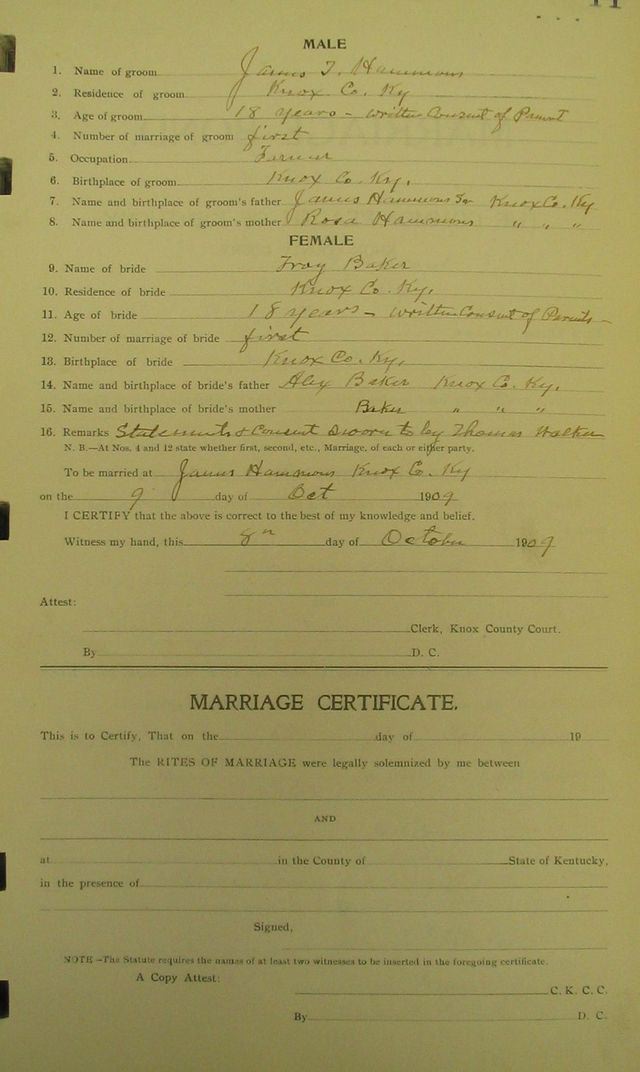 MALE
1. Name of groom James T. Hammons
2. Residence of groom Knox Co. Ky
3. Age of groom 18 years - written Consent of Parent
4. Number of marriage of groom first
5. Occupation Farmer
6. Birthplace of groom Knox Co. Ky.
7. Name and birthplace of groom's father James Hammons Sr Knox Co. Ky
8. Name and birthplace of groom's mother Rosa Hammons " " "
FEMALE
9. Name of bride Troy Baker
10. Residence of bride Knox Co. Ky.
11. Age of bride 18 years - written Consent of Parents -
12. Number of marriage of bride first
13. Birthplace of bride Knox Co. Ky.
14. Name and birthplace of bride's father Alex Baker Knox Co. Ky.
15. Name and birthplace of bride's mother Baker " " "
16. Remarks Statements & Consent Sworn to by Thomas Walker
N. B.—At Nos. 4 and 12 state whether first, second, etc., Marriage, of each or either party.
To be married at James Hammons Knox Co. Ky
on the 9 day of Oct 1909
I CERTIFY that the above is correct to the best of my knowledge and belief.
Witness my hand, this 8 day of October 1909
Attest:
Clerk, Knox County Court.
By D. C.
MARRIAGE CERTIFICATE.
This is to Certify, That on the day of 19
The RITES OF MARRIAGE were legally solemnized by me between
AND
at in the County of State of Kentucky,
in the presence of
Signed,
NOTE—The Statute requires the names of at least two witnesses to be inserted in the foregoing certificate.
A Copy Attest:
C. K. C. C.
By D. C.